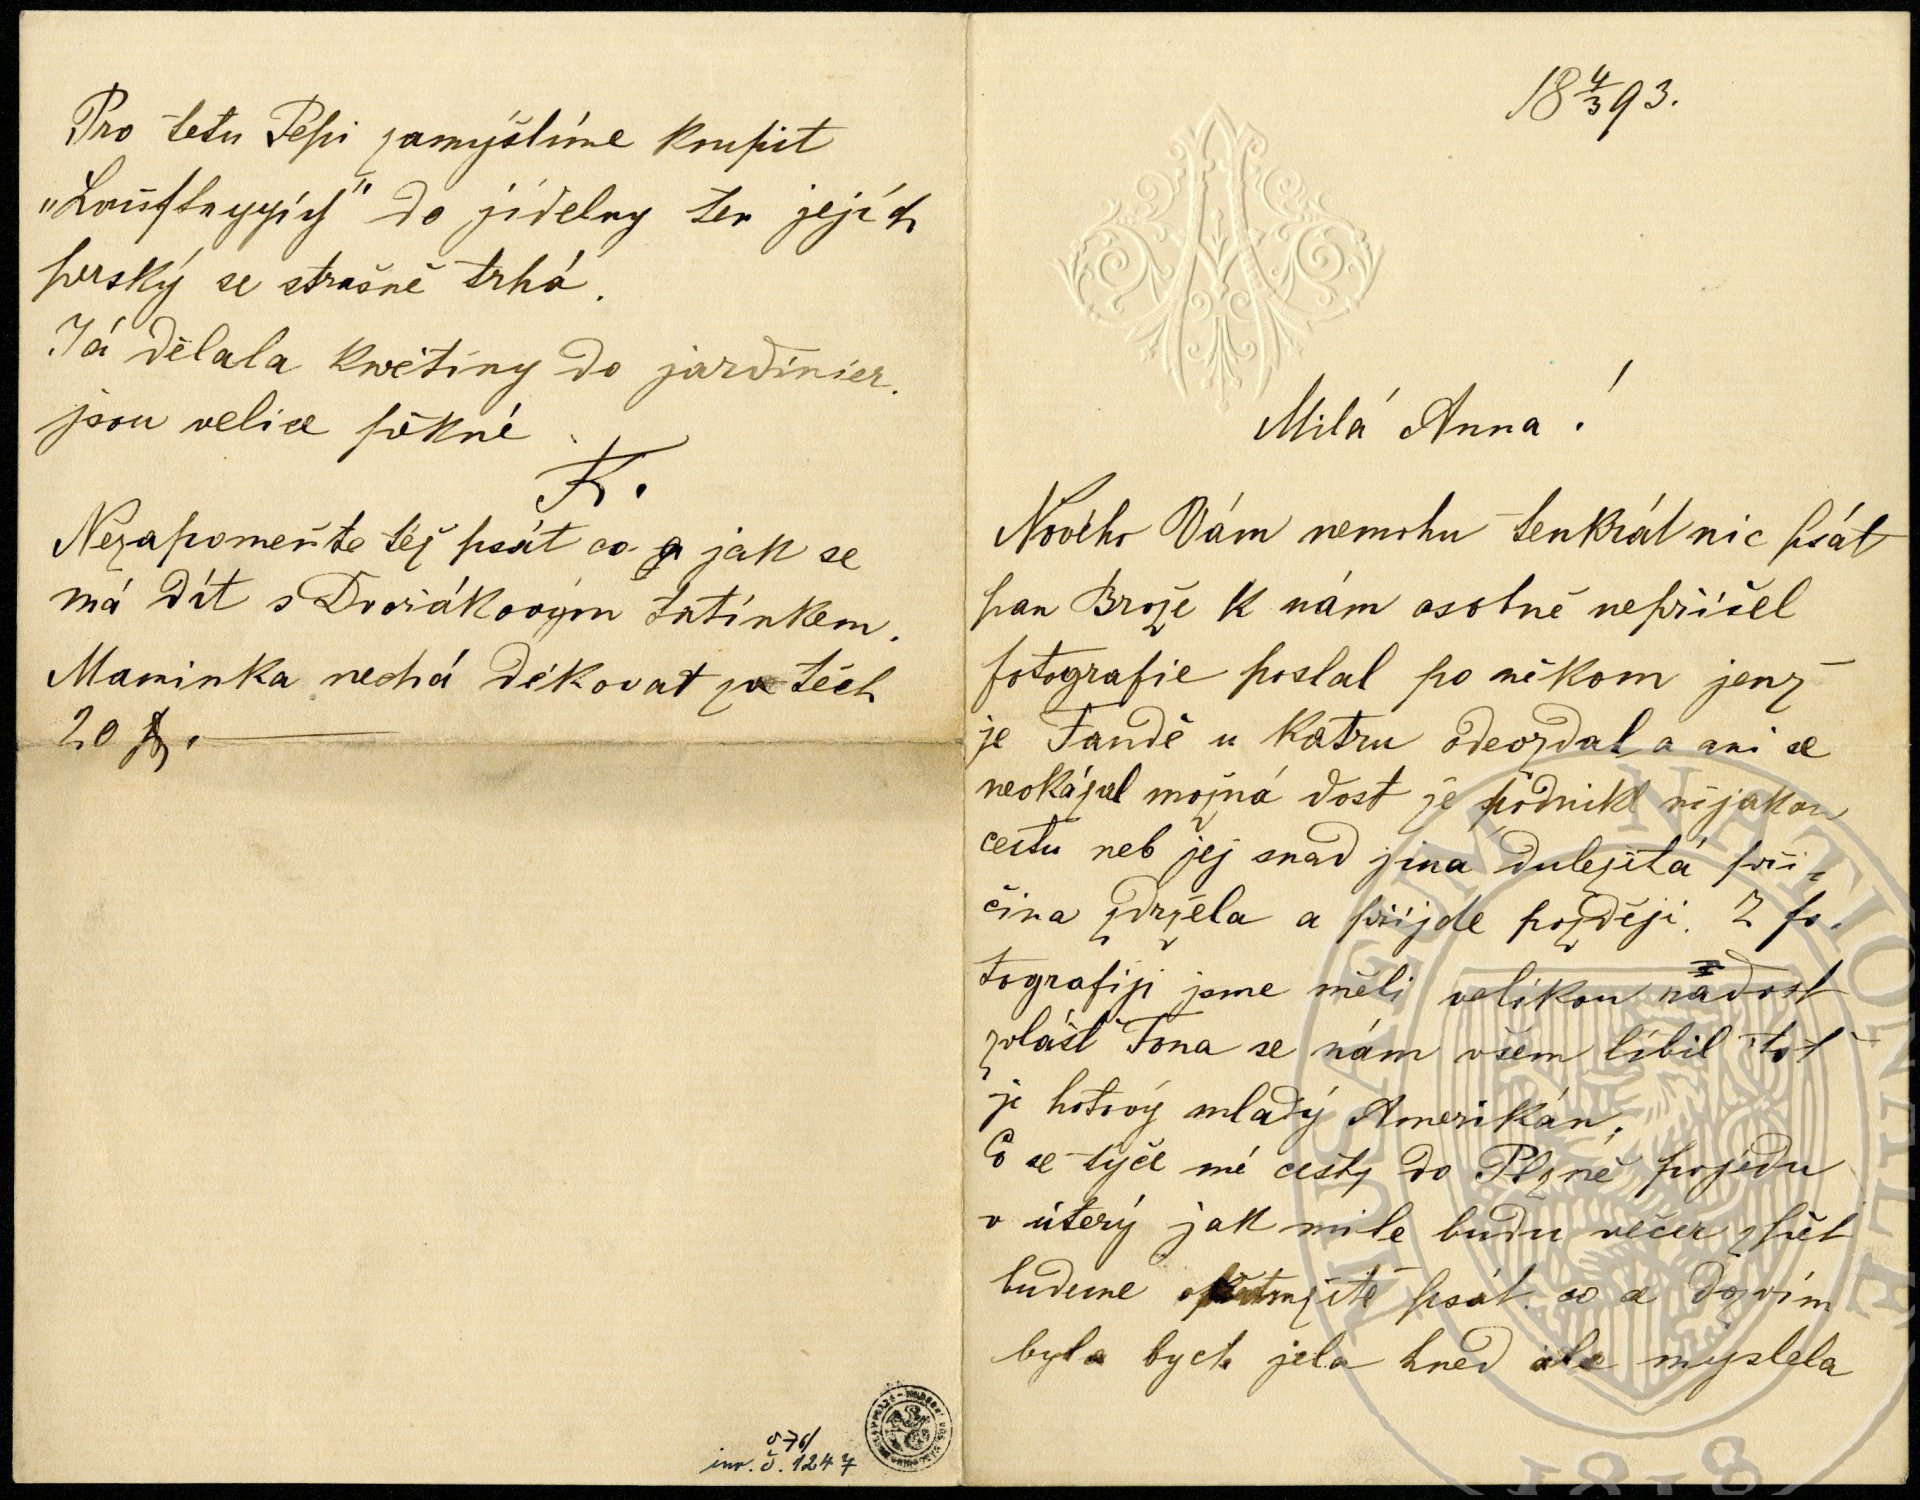 18 4/3 93.
Milá Anna!
Nového Vám nemohu tenkrát nic psát
pan Brože k nám osobně nepřišel
fotografie poslal po někom jenž
je Fandě u Katru odevzdal a ani se
neokázal možná dost že podnikl nějakou
cestu neb jej snad jina duležitá pří-
čina zdržela a přijde pozdějí. Z fo-
tografiji jsme měli velikou radost
zvlášť Tona se nám všem líbil toť
je hotový mladý Amerikán.
Co se týče mé cesty do Plzně pojedu
v úterý jak mile budu večer zpět
budeme okamžitě psát co se dozvím
byla bych jela hned ale myslela
Pro tetu Pepi zamýšlíme koupit
"Laufteppich" do jídelny ten jejích
perský se strašně trhá.
Já dělala kwětiny do jardinier.
jsou velice pěkné
K.
Nezapomeňte též psát co a jak se
má dít s Dvořákovým tatínkem.
Maminka nechá děkovat za těch
20
inv. č. 1247
MUSAEUM NATIONALE
1818